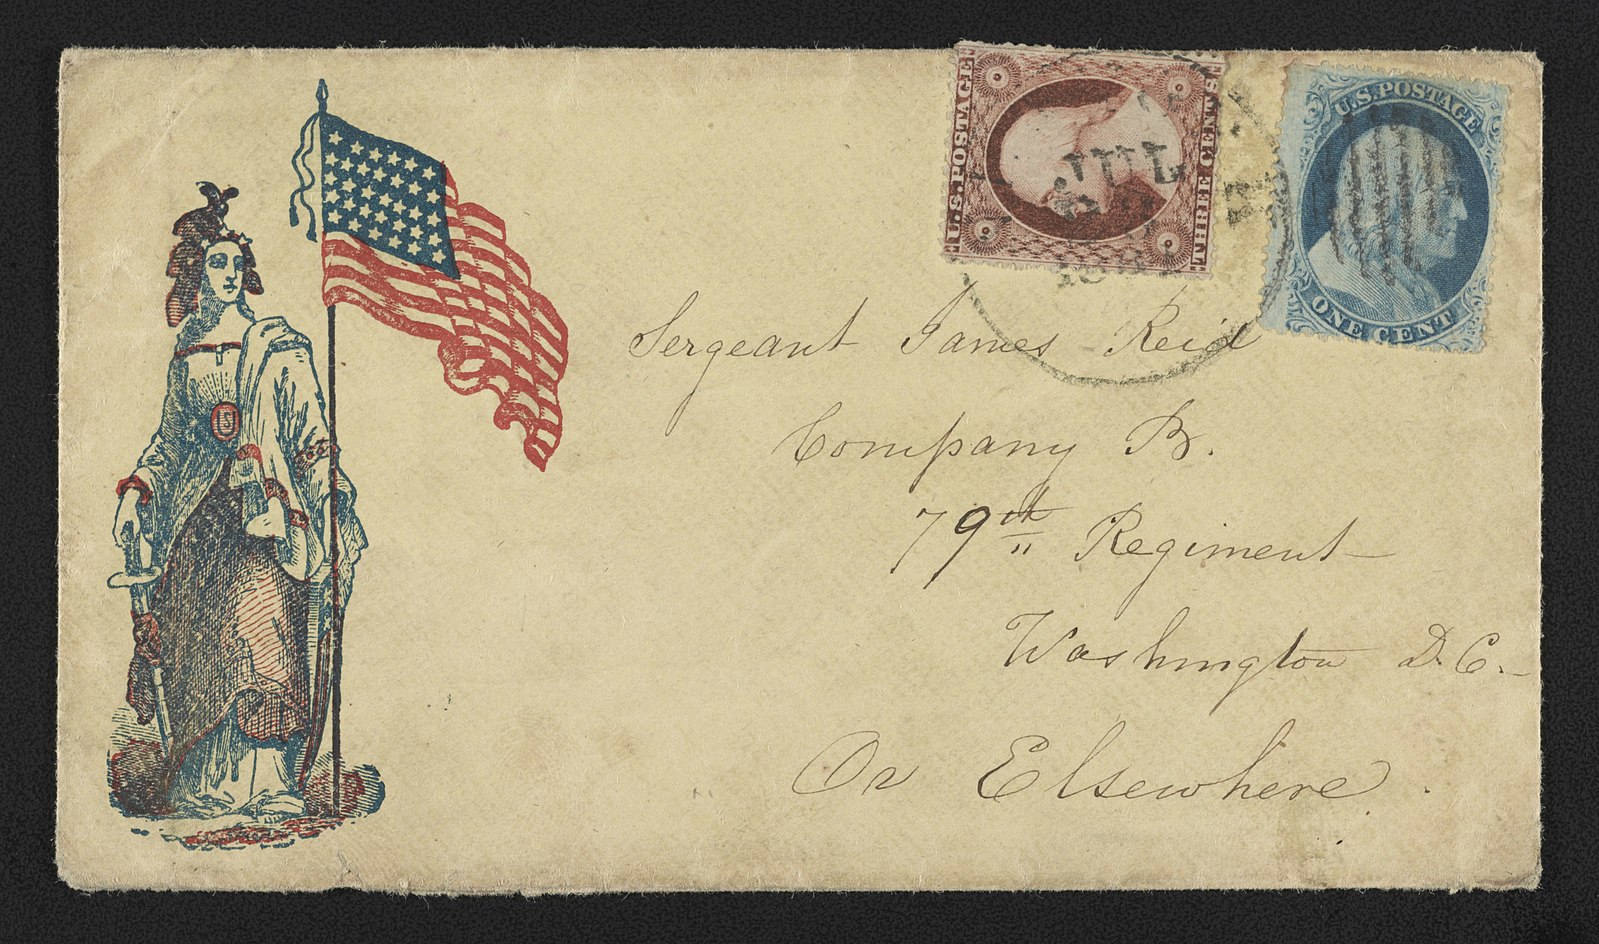 U.S. POSTAGE
THREE CENTS
U.S. POSTAGE
ONE CENT
JUL
US
Sergeant James Reid
Company B.
79th Regiment
Washington D.C.
Or Elsewhere.